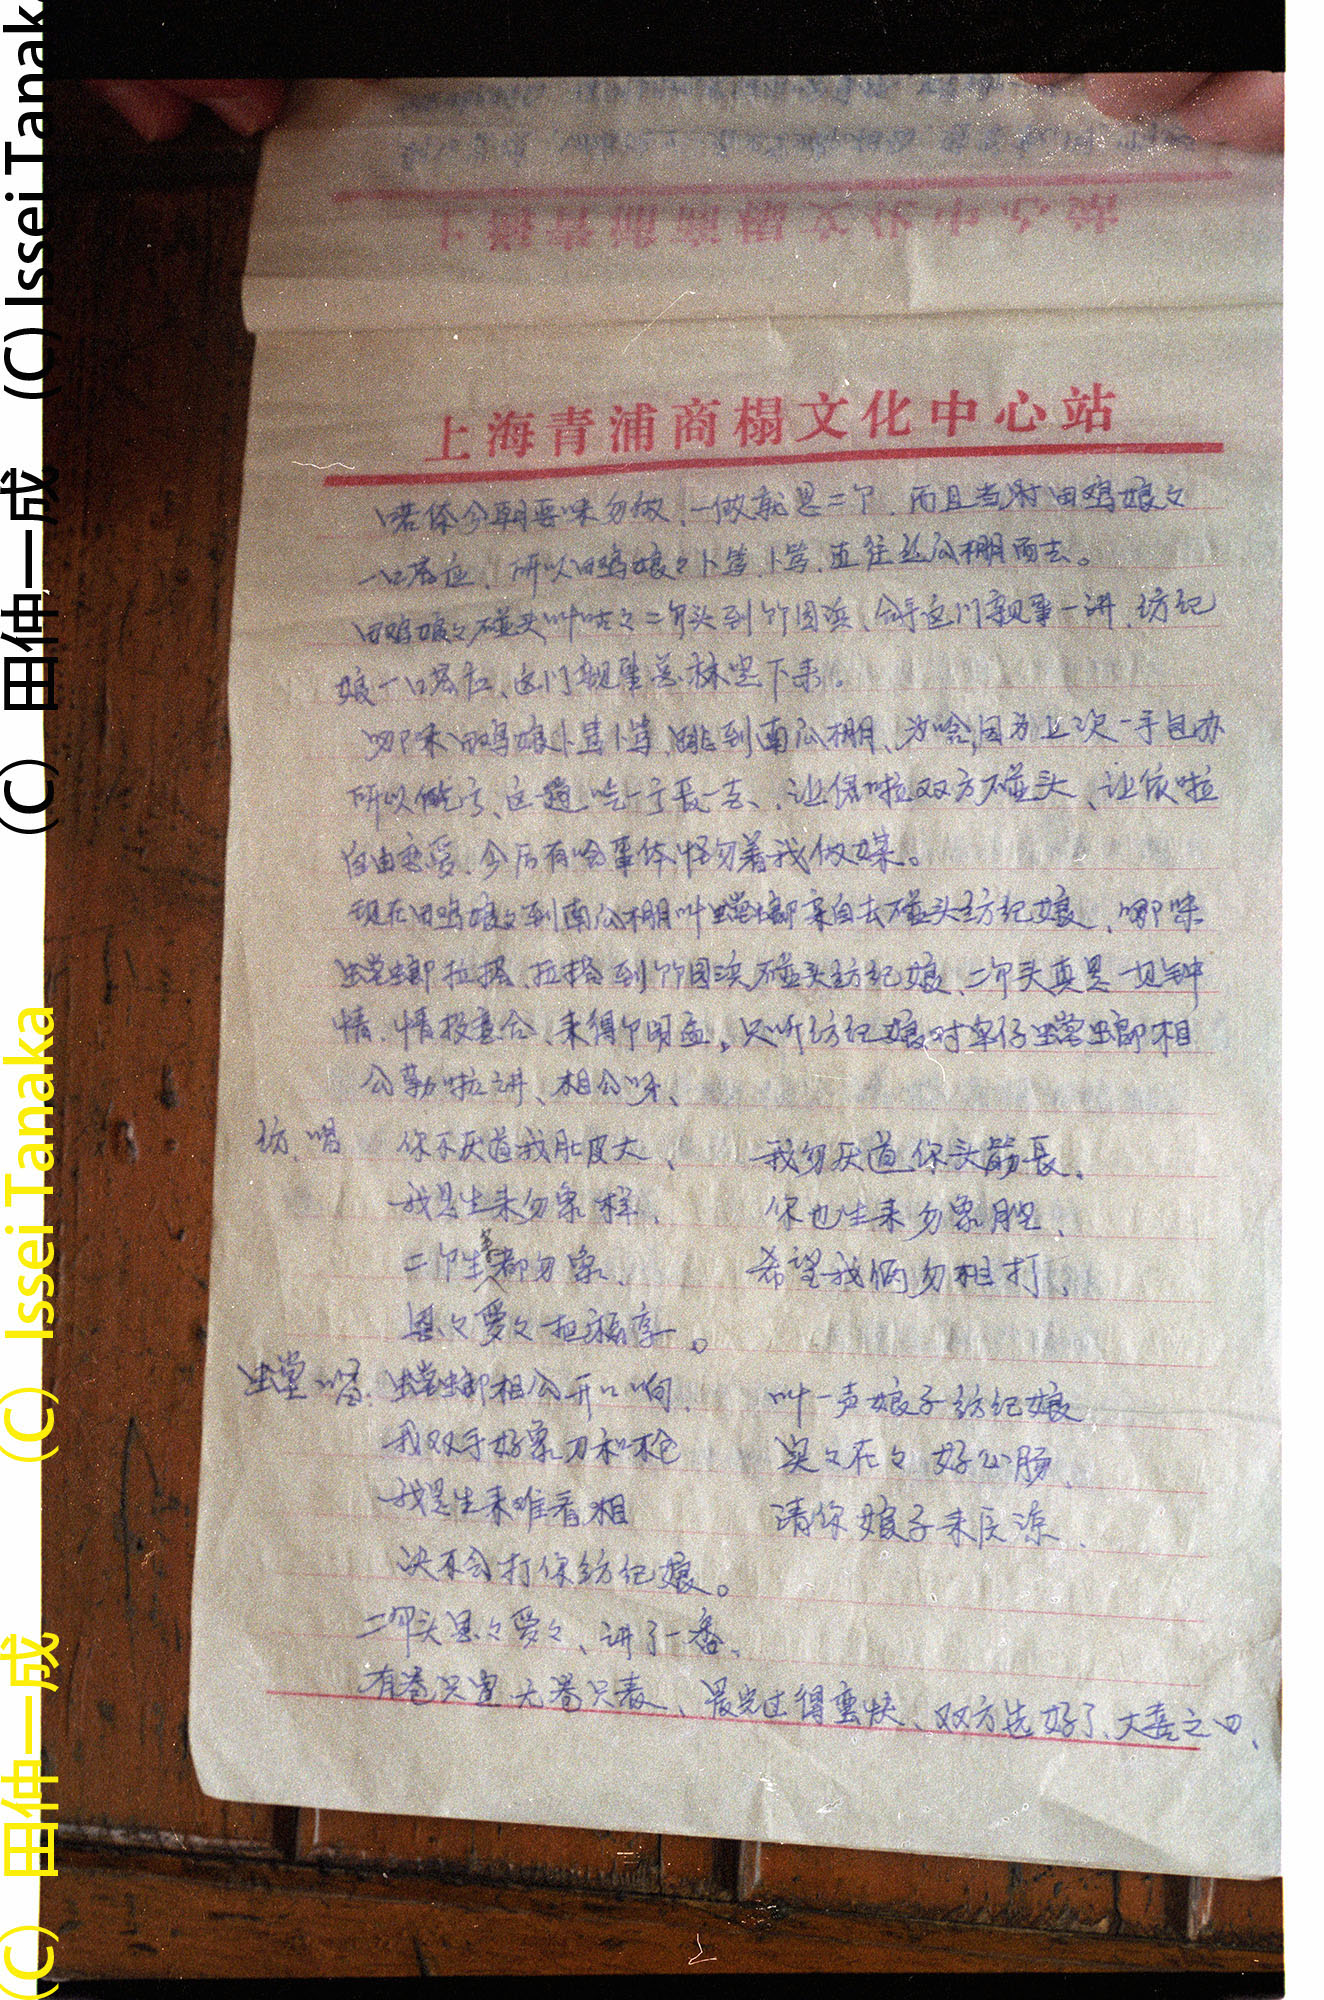 上海青浦商榻文化中心站
喏侬今朝要味勿做、一做就是二个、而且当时田鸡娘々
一口答应、所以田鸡娘々卜笃、卜笃、直往丝瓜棚而去。
田鸡娘々碰头叫咕々二个头到竹园浜、拿这门亲事一讲、纺纪
娘一口答应、这门亲事总算定下来。
哪味田鸡娘卜笃卜笃、跳到南瓜棚、为啥、因为上次一手包办
所以吃亏、这趟吃一亏长一志、让俚啦双方碰头、让侬啦
自由恋爱、今后有啥事体怪勿着我做媒。
现在田鸡娘々到南瓜棚叫螳螂亲自去碰头纺纪娘、哪味
螳螂拉搭、拉搭到竹园浜碰头纺纪娘、二个头真是一见钟
情、情投意合、来得个明孟、只听纺纪娘对牢仔螳螂相
公勒啦讲、相公呀、
纺、唱 你不厌道我肚皮大、 我勿厌道你头颈长、
我是生来勿象样、 你也生来勿象腔、
二个生来都勿象、 希望我俩勿相打、
恩々爱々把福享。
螳唱、螳螂相公开口响、 叫一声娘子纺纪娘
我双手好象刀和枪 实々在々好心肠、
我是生来难看相 请你娘子来原谅、
决不会打你纺纪娘。
二个头恩々爱々、讲了一番、
有卷只宣无卷只表、晨光过得蛮快、双方选好了、大喜之日、
(C) 田仲一成 (C) Issei Tanaka
(C) 田仲一成 (C) Issei Tanaka